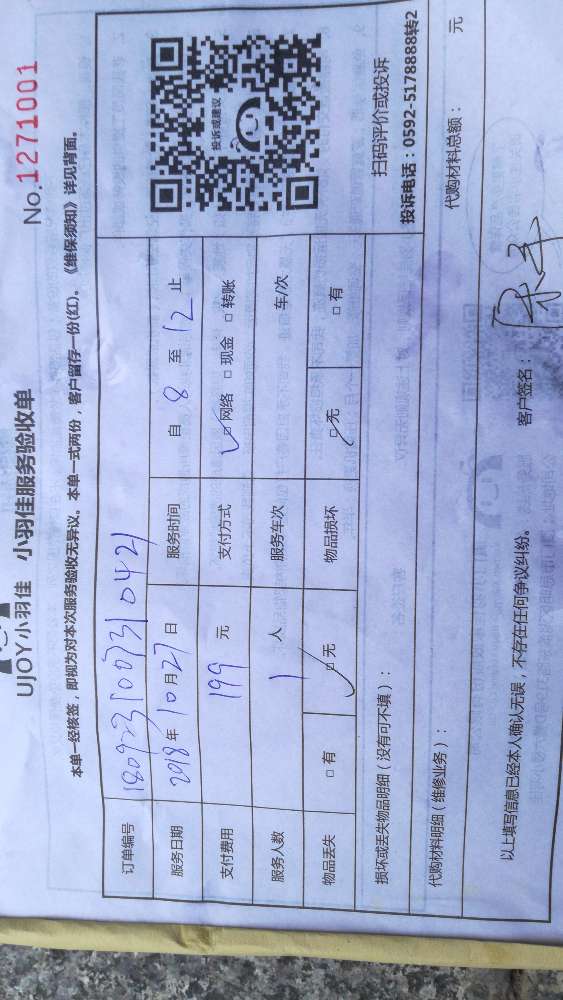 UJOY小羽佳 小羽佳服务验收单
No.1271001
本单一经核签，即视为对本次服务验收无异议。本单一式两份，客户留存一份(红)。《维保须知》详见背面。
订单编号 1809231007310421
服务日期 2018年10月27日 服务时间 自 8 至 12 止
支付费用 199 元 支付方式 ☑网络 □现金 □转账
服务人数 1 人 服务车次 车/次
物品丢失 □有 ☑无 物品损坏 ☑无 □有
投诉或建议
扫码评价或投诉
投诉电话：0592-5178888转2
损坏或丢失物品明细（没有可不填）：
代购材料明细（维修业务）： 代购材料总额： 元
以上填写信息已经本人确认无误，不存在任何争议纠纷。 客户签名：